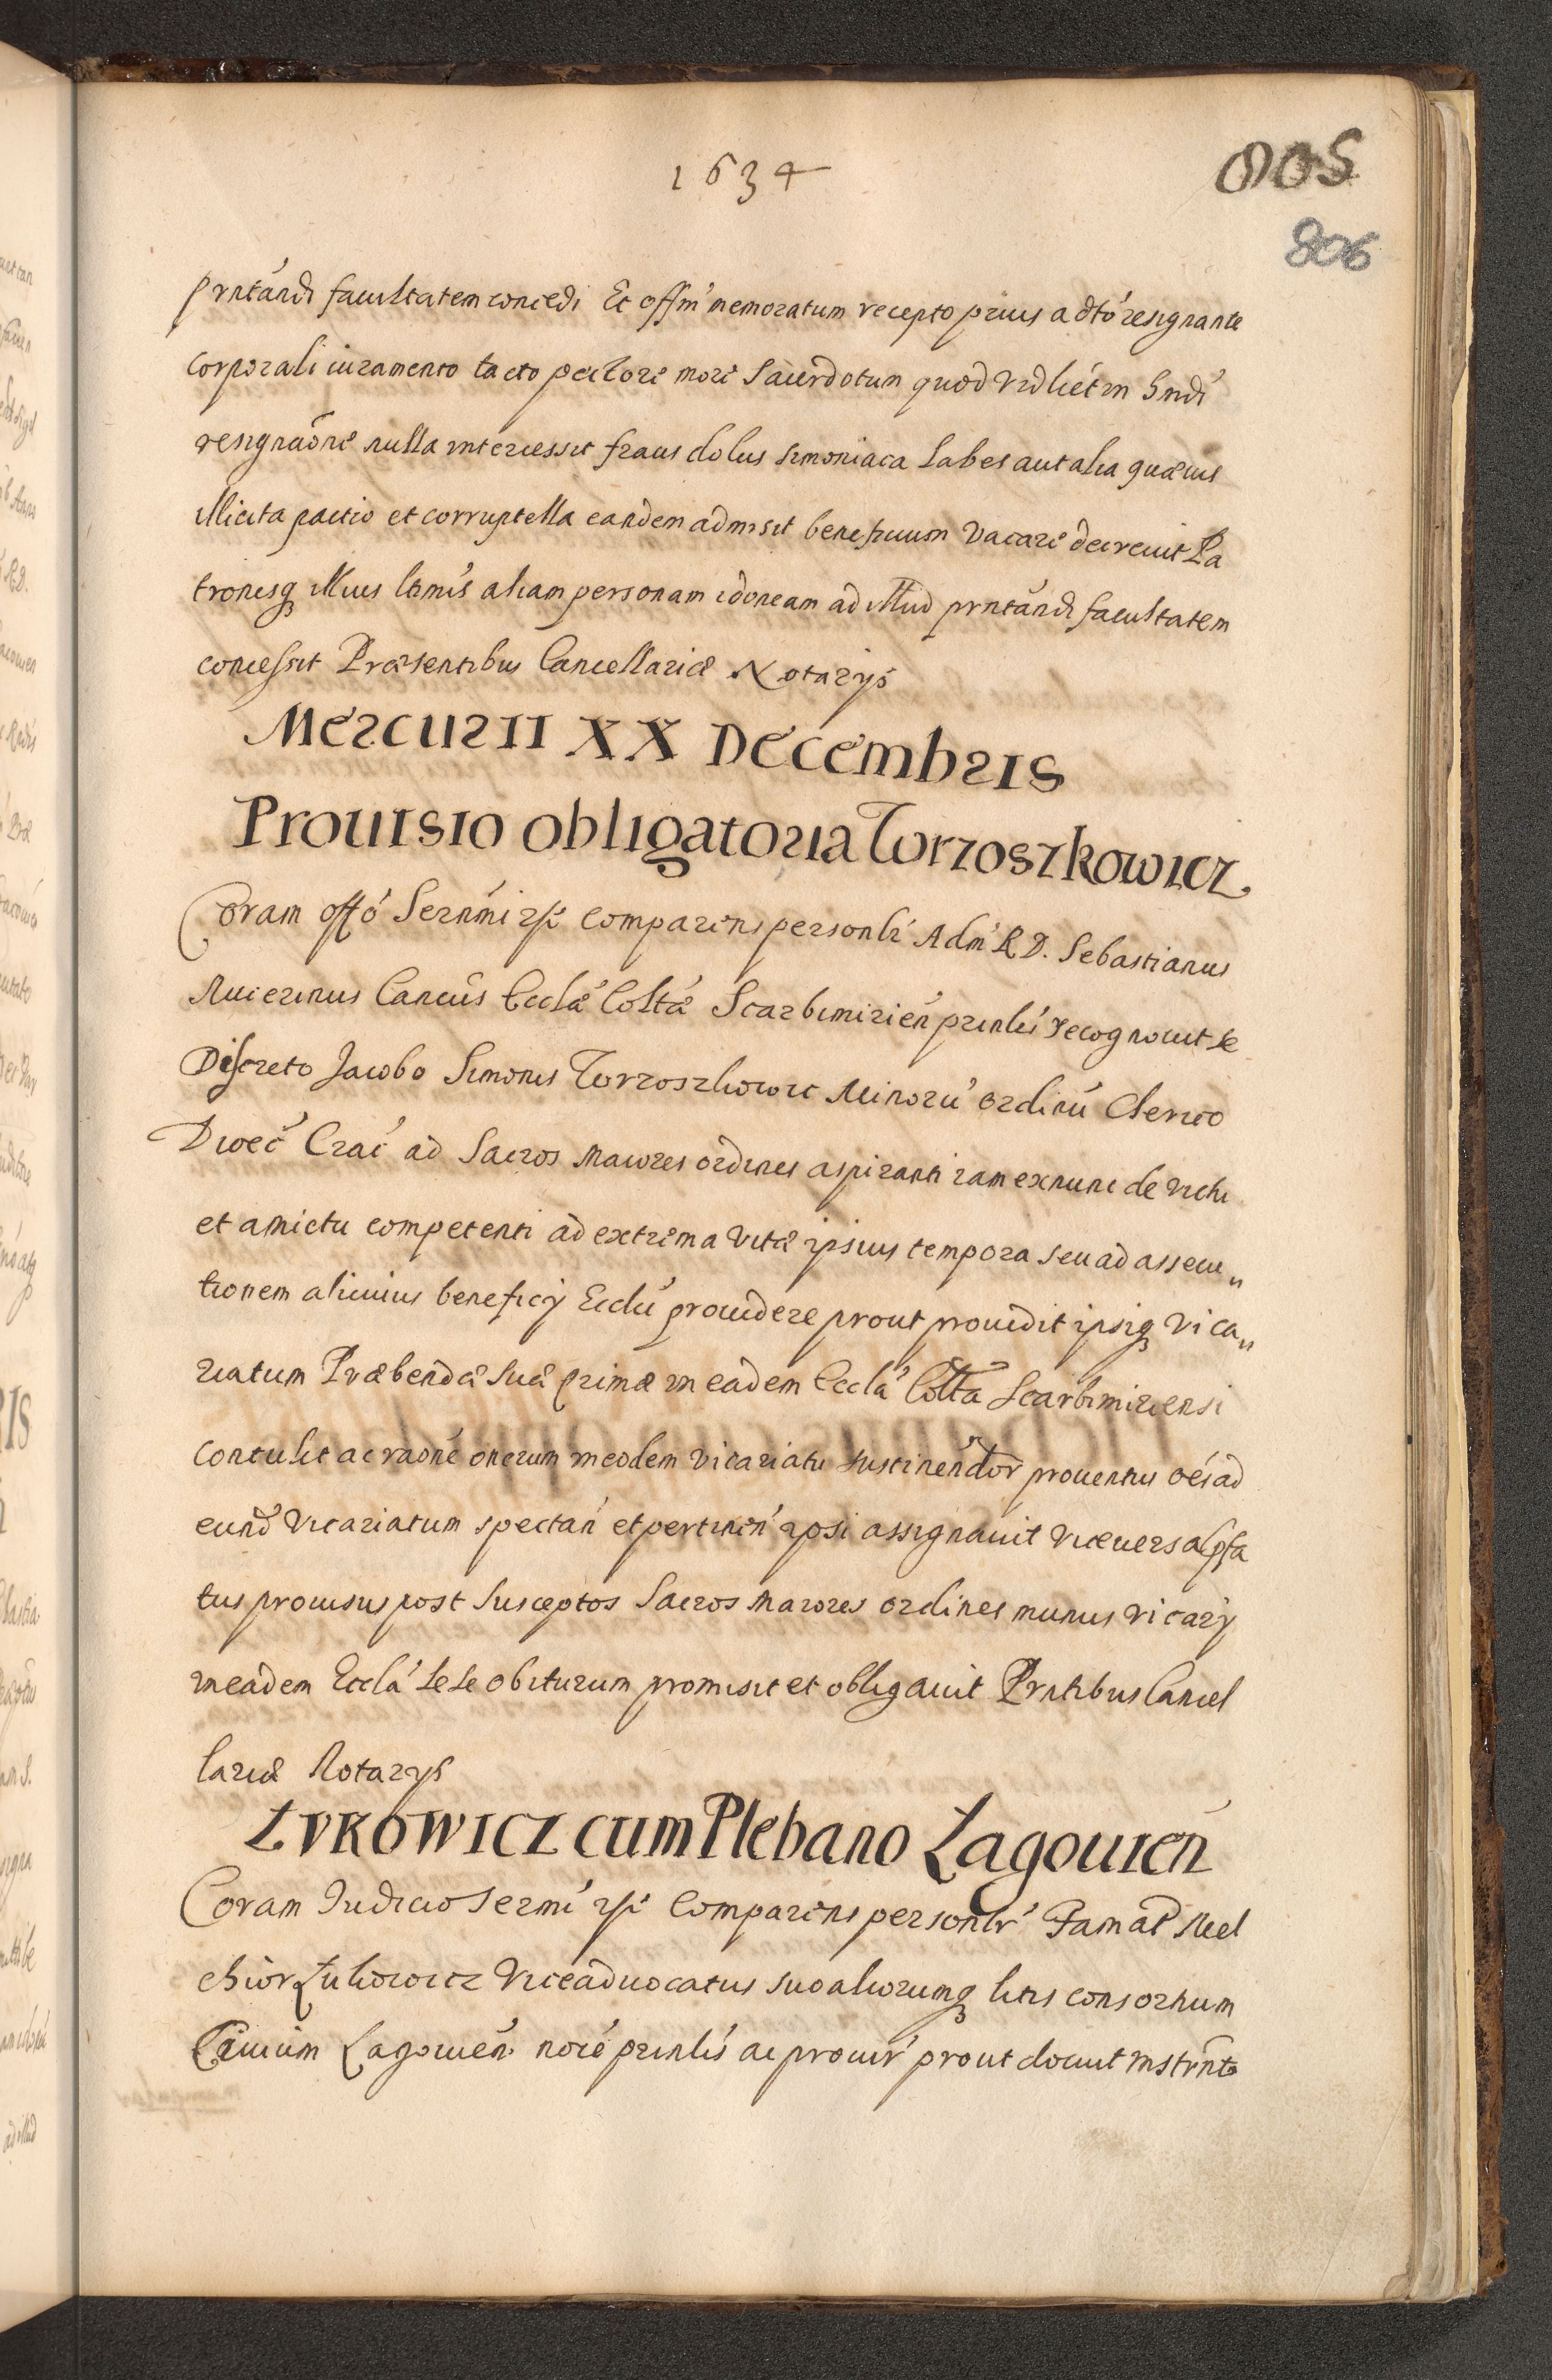 1634
805
806
prntándi facultatem concedi Et offm̃ memoratum recepto prius a dtó resignante
corporali iuramento tacto pectore more Sacerdotum quod vidlicét in hmdi
resignaõne nulla intercessit fraus dolus simoniaca labes aut alia quævis
illicita pactio et corruptella eandem admisit beneficium vacare decrevit Pa
tronisq illius ltmis aliam personam idoneam ad illud prntándi facultatem
concessit Præsentibus Cancellariæ Notarys
Mercurii XX Decembris
Prouisio obligatoria Torzoszkowicz
Coram offó Sernḿi rsi comparens personlr Adm̃ R D. Sebastianus
Mucerinus Cancús Ecclæ Coltæ Scarbimirień prinlís recognouit se
Discreto Jacobo Simonis Torzoszkowic Minorú ordinú Clerico
Dioeć Crać ad Sacros Maiores ordines aspiranti iam ex nunc de victu
et amictu competenti ad extrema vitæ ipsius tempora seu ad assecu„
tionem alicuius beneficy Ecclci prouidere prout prouidit ipsiq vica„
riatum Præbendæ suæ primæ in eadem Ecclá Coltta Scarbimiriensi
contulit ac raoné onerum in eodem vicariatu sustinendor prouentus oés ad
eund vicariatum spectań et pertineń ipsi assignauit viceversa pfa
tus prouisus post susceptos Sacros maiores ordines munus vicary
in eadem Ecclá sese obiturum promisit et obligauit Prntibus Cancel
lariæ Notarys
ŁVKOWICZ cum Plebano Łagouień
Coram Judicio Sermi rsi Comparens personlr Famat Mel
chior Łukowicz viceaduocatus suo aliorumq litis consortium
Ciuium Łagouień noié prinlís ac procur prout docuit instrnto